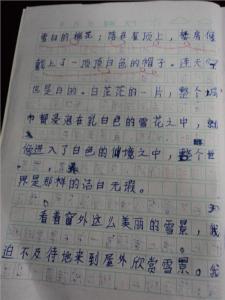 雪白的棉花；落在屋顶上，楼房便
戴上了一顶顶白色的帽子。连天
也是白的。白茫茫的一片，整个城
市都浸泡在乳白色的雪花之中，
进入了白色的仙境之中，整个世
界是那样的洁白无瑕。
看着窗外这么美丽的雪景，我
迫不及待地来到屋外欣赏雪景。我